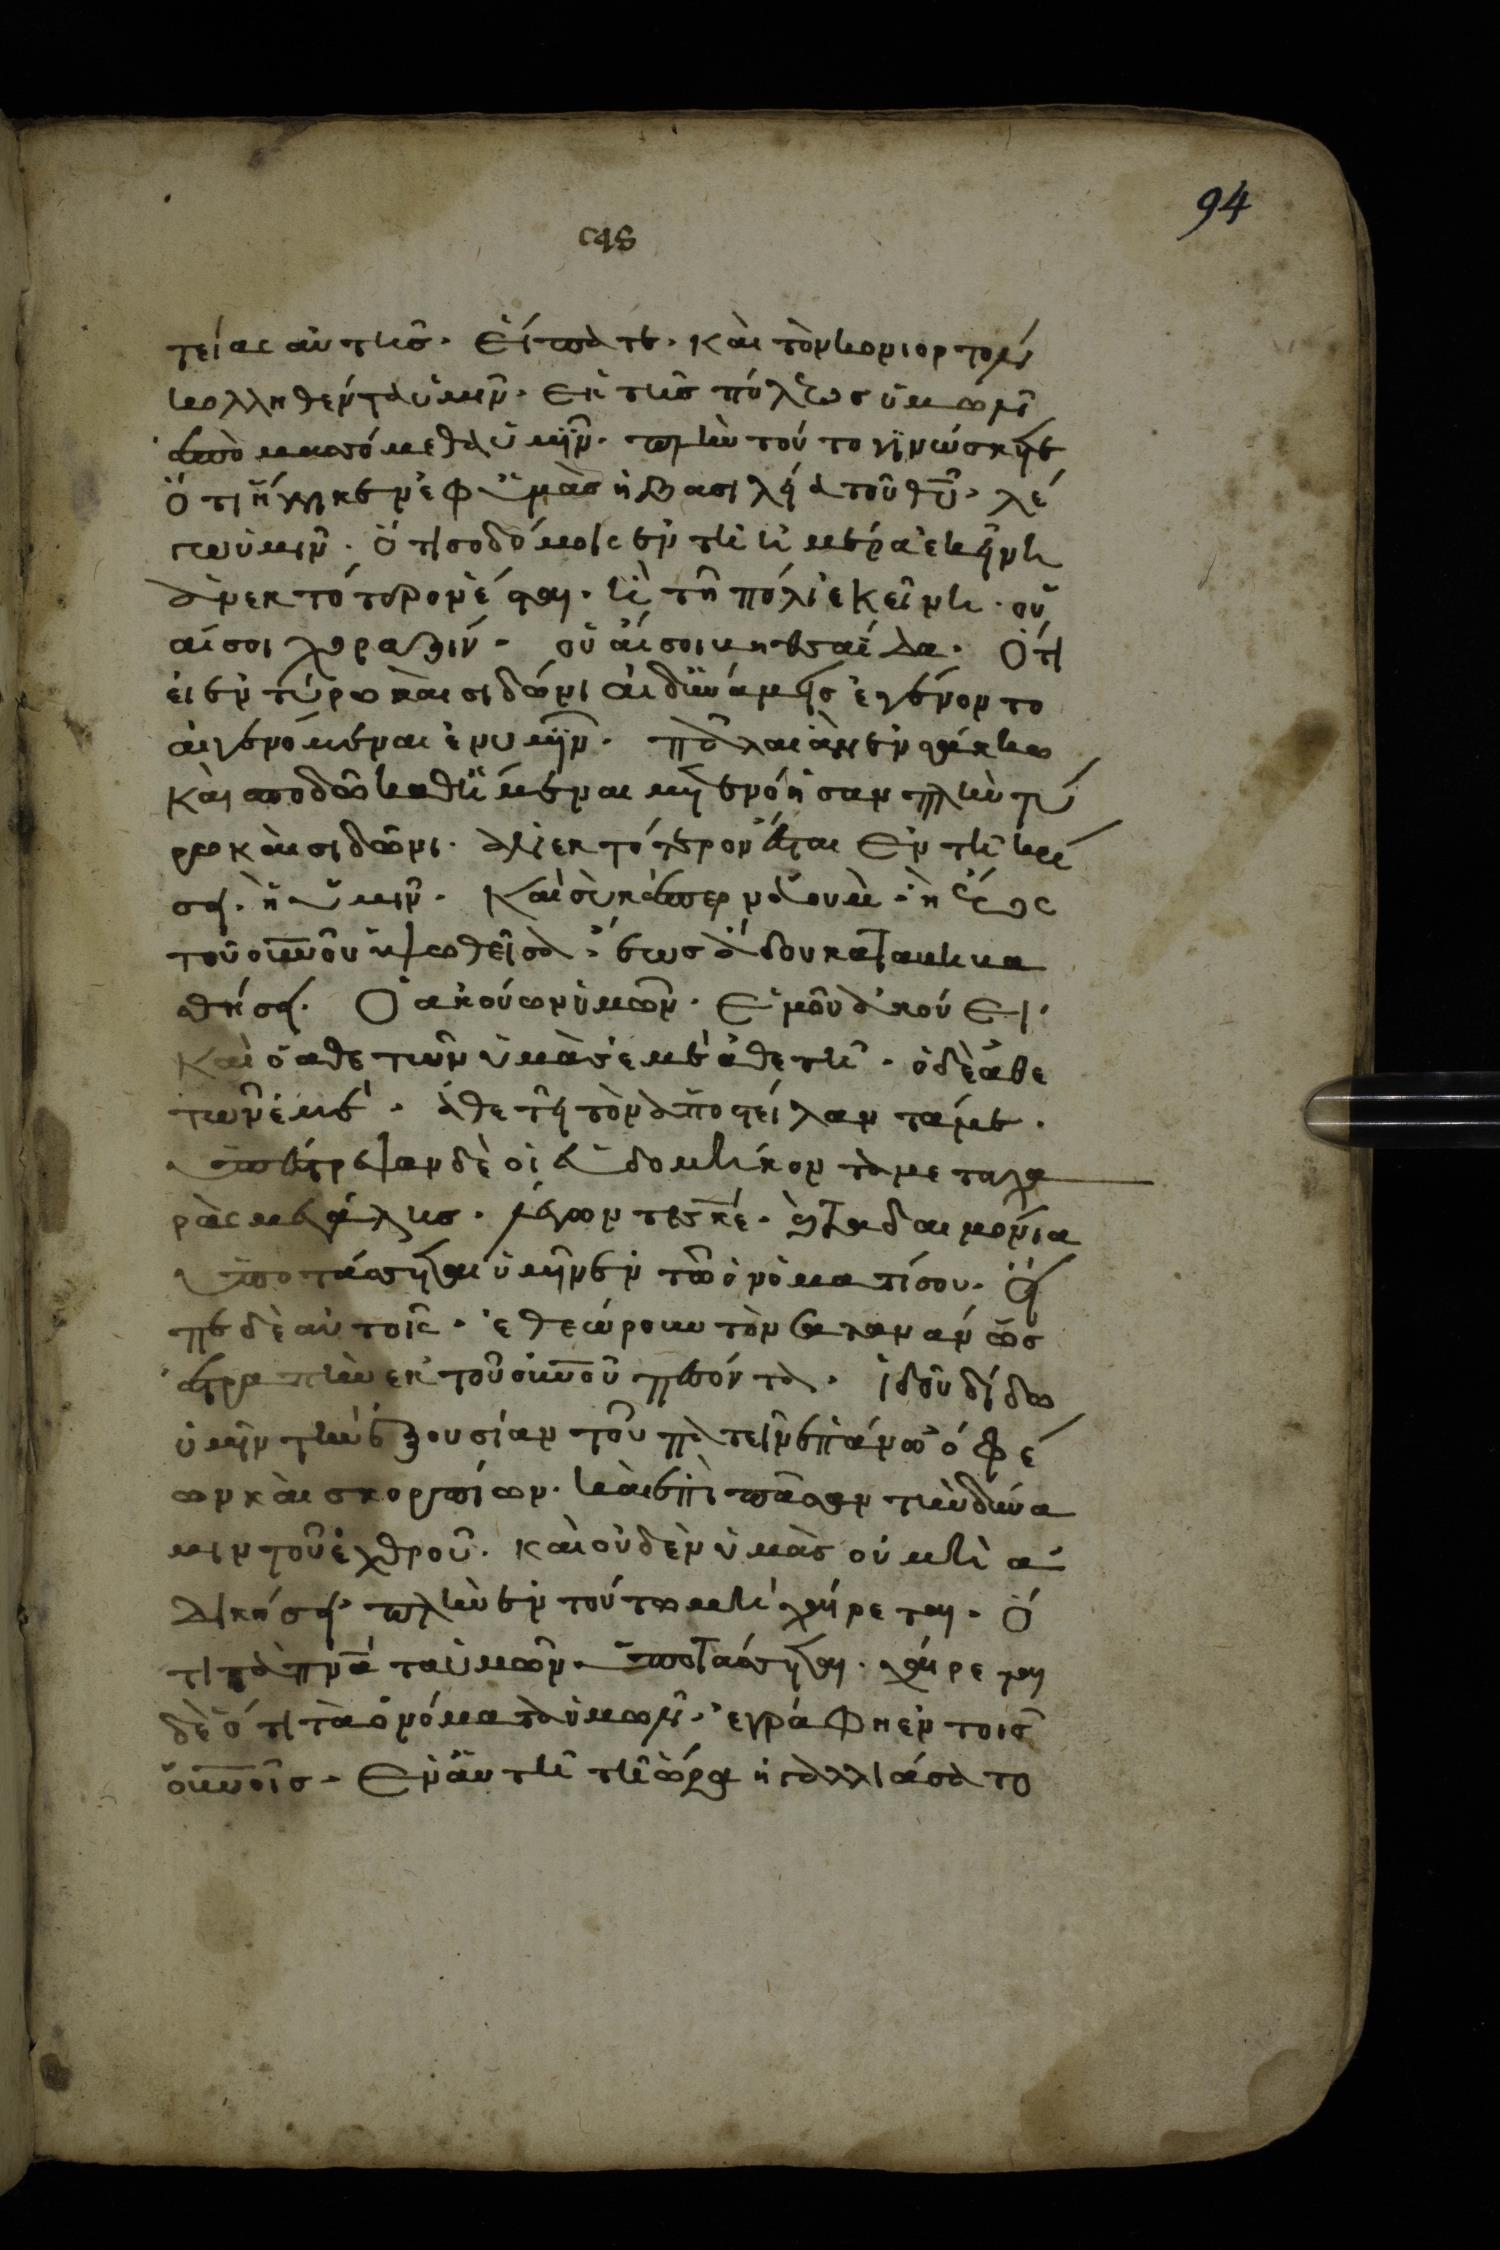 ϟϛ
94
τείας αὐτῆς. Εἴπατε. καὶ τὸν κονιορτὸν
κολληθέντα ὑμῖν. Ἐκ τῆς πόλεως ὑμῶν
ἀπομασσόμεθα ὑμῖν. πλὴν τοῦτο γινώσκητε
Ὅτι ἤγγηκεν ἐφ ὑμὰς ἡ βασιλεία τοῦ θυ. λέ
γω ὑμῖν. Ὅτι σοδόμοις ἐν τῆ ἡμέρα ἐκείνη
ἀνεκτότερον έσται. ἢ τῆ πόλι ἐκείνη. οὐ
αί σοι χοραζίν. οὐαί σοι βηθσαίδα. Ὅτι
εἰ ἐν τύρω καὶ σιδώνι αἱ δυνάμεις ἐγένοντο
αἱ γενόμεναι ἐν υμῖν. πάλαι ἂν ἐν σάκκω
καὶ σποδῶ καθήμεναι μετενόησαν πλὴν τύ
ρω καὶ σιδῶνι. ἀνεκτότερον έσται Ἐν τῆ κρί
σει. ἢ ὑμῖν. Καὶ σὺ καπερναοὺμ. ἡ ἕως
τοῦ οὐνοῦ ὑψωθεῖσα. ἕως ἅδου καταβηβα
σθήσει. Ὁ ἀκούων ὑμῶν. Ἐμοῦ ἀκούει.
Καὶ ὁ αθετῶν ὑμὰς ἐμὲ ἀθετῆ. ὁ δὲ ἀθε
τῶν ἐμέ. ἀθετεῖ τὸν ἀποστείλαντά με.
ὑπέστρεψαν δὲ οἱ ἑβδομήκοντα μετα χα
ρὰς μεγάλης. λέγοντες κε. καὶ τα δαιμόνια
ὑποτάσσεται ὑμῖν ἐν τῶ ὀνόματί σου. Εἶ
πε δὲ αὐτοῖς. ἐθεώρουν τὸν σαταναν ὡς
ἀστραπὴν ἐκ τοῦ οὐνοῦ πεσόντα. ἰδοῦ δίδω
ὑμῖν τὴν ἐξουσίαν τοῦ πατεῖν ἐπάνω ὀφέ
ων καὶ σκορπίων. καὶ ἐπὶ πᾶσαν τὴν δύνα
μιν τοῦ ἐχθροῦ. καὶ οὐδὲν ὑμὰς οὐ μὴ α
δικήσει. πλὴν ἐν τούτω μὴ χαίρεται. Ὅ
τι τὰ πνα τα ὑμῶν. ὑποτάσσεται. χαίρεται
δὲ ὅτι τὰ ὀνόματα ὑμῶν. ἐγράφη ἐν τοῖς
οὐνοῖς. Ἐν ἀυτῆ τῆ ὥρα ἠγαλλιάσατο